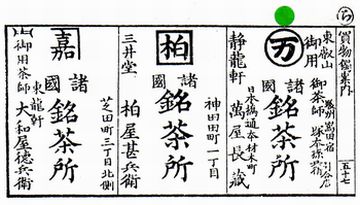 五十七
東叡山
御用
御茶師
万
諸國
銘茶所
日本橋通本材木町
静龍軒
萬屋長藏
柏
神田田町一丁目
諸國
銘茶所
三井堂
柏屋甚兵衛
嘉
芝田町三丁目北側
諸國
銘茶所
東龍軒
御用茶師
大和屋徳兵衛